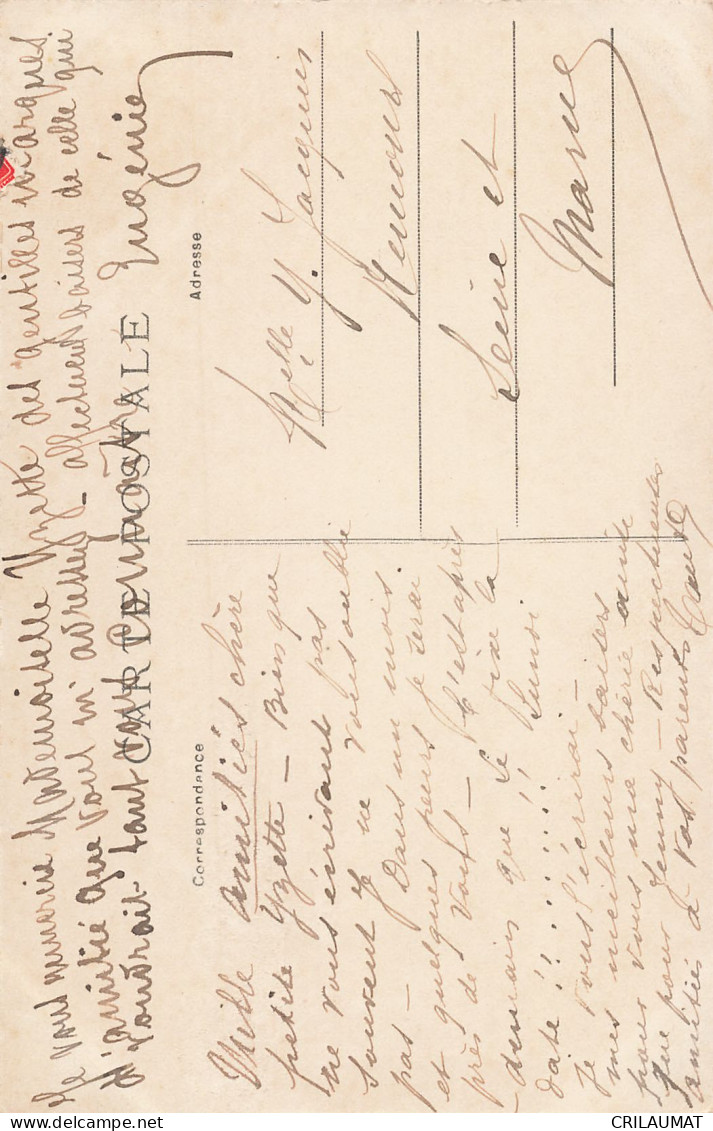 Je vous remercie Mademoiselle Yzette des gentilles marques
d'amitié que vous m'adressez affectueux baisers de celle qui
voudrait tant vous
Eugénie
CARTE POSTALE
Correspondance
Adresse
Mille amitiés chère
petite Yzette - Bien que
ne vous écrivant pas
souvent je ne vous oublie
pas - Dans un mois
et quelques jours je serai
près de vous - C'est après
demain que je fixe la
date !!!!!!! Lundi
Je vous l'écrirai -
mes meilleurs baisers
pour vous ma chérie ainsi
que pour Jenny - Respectueuses
amitiés à vos parents
Melle Y. Jacques
Nemours
Seine et
Marne
CRILAUMAT